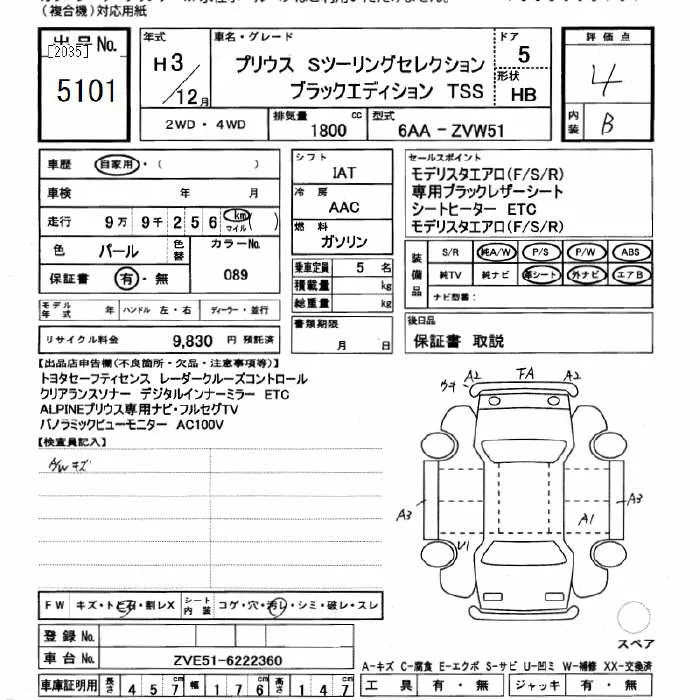 (複合機)対応用紙
出品No.
[2035]
5101
年式
H3/12月
車名・グレード
プリウス Sツーリングセレクション
ブラックエディション TSS
ドア
5
形状
HB
評価点
4
内装
B
2WD・4WD
排気量
1800 cc
型式
6AA-ZVW51
車歴 自家用・( )
車検 年 月
走行 9万 9千 2 5 6 km マイル ( )
色 パール 色替 カラーNo. 089
保証書 有・無
モデル年式 年 ハンドル 左・右 ディーラー・並行
リサイクル料金 9,830 円 預託済
シフト
IAT
冷房
AAC
燃料
ガソリン
乗車定員 5 名
積載量 kg
総重量 kg
書類期限
月 日
セールスポイント
モデリスタエアロ(F/S/R)
専用ブラックレザーシート
シートヒーター ETC
モデリスタエアロ(F/S/R)
装備品
S/R 純A/W P/S P/W ABS
純TV 純ナビ 革シート 外ナビ エアB
ナビ型番:
後日品
保証書 取説
【出品店申告欄(不良箇所・欠品・注意事項等)】
トヨタセーフティセンス レーダークルーズコントロール
クリアランスソナー デジタルインナーミラー ETC
ALPINEプリウス専用ナビ・フルセグTV
パノラミックビューモニター AC100V
【検査員記入】
A/W キズ
A2 FA A2
A3
A3
A1
U1
FW キズ・トビ石・割レX シート内装 コゲ・穴・汚レ・シミ・破レ・スレ
登録No.
車台No. ZVE51-6222360
スペア
A-キズ C-腐食 E-エクボ S-サビ U-凹ミ W-補修 XX-交換済
車庫証明用 長さ 4 5 7 幅 1 7 6 高さ 1 4 7
工具 有・無 ジャッキ 有・無